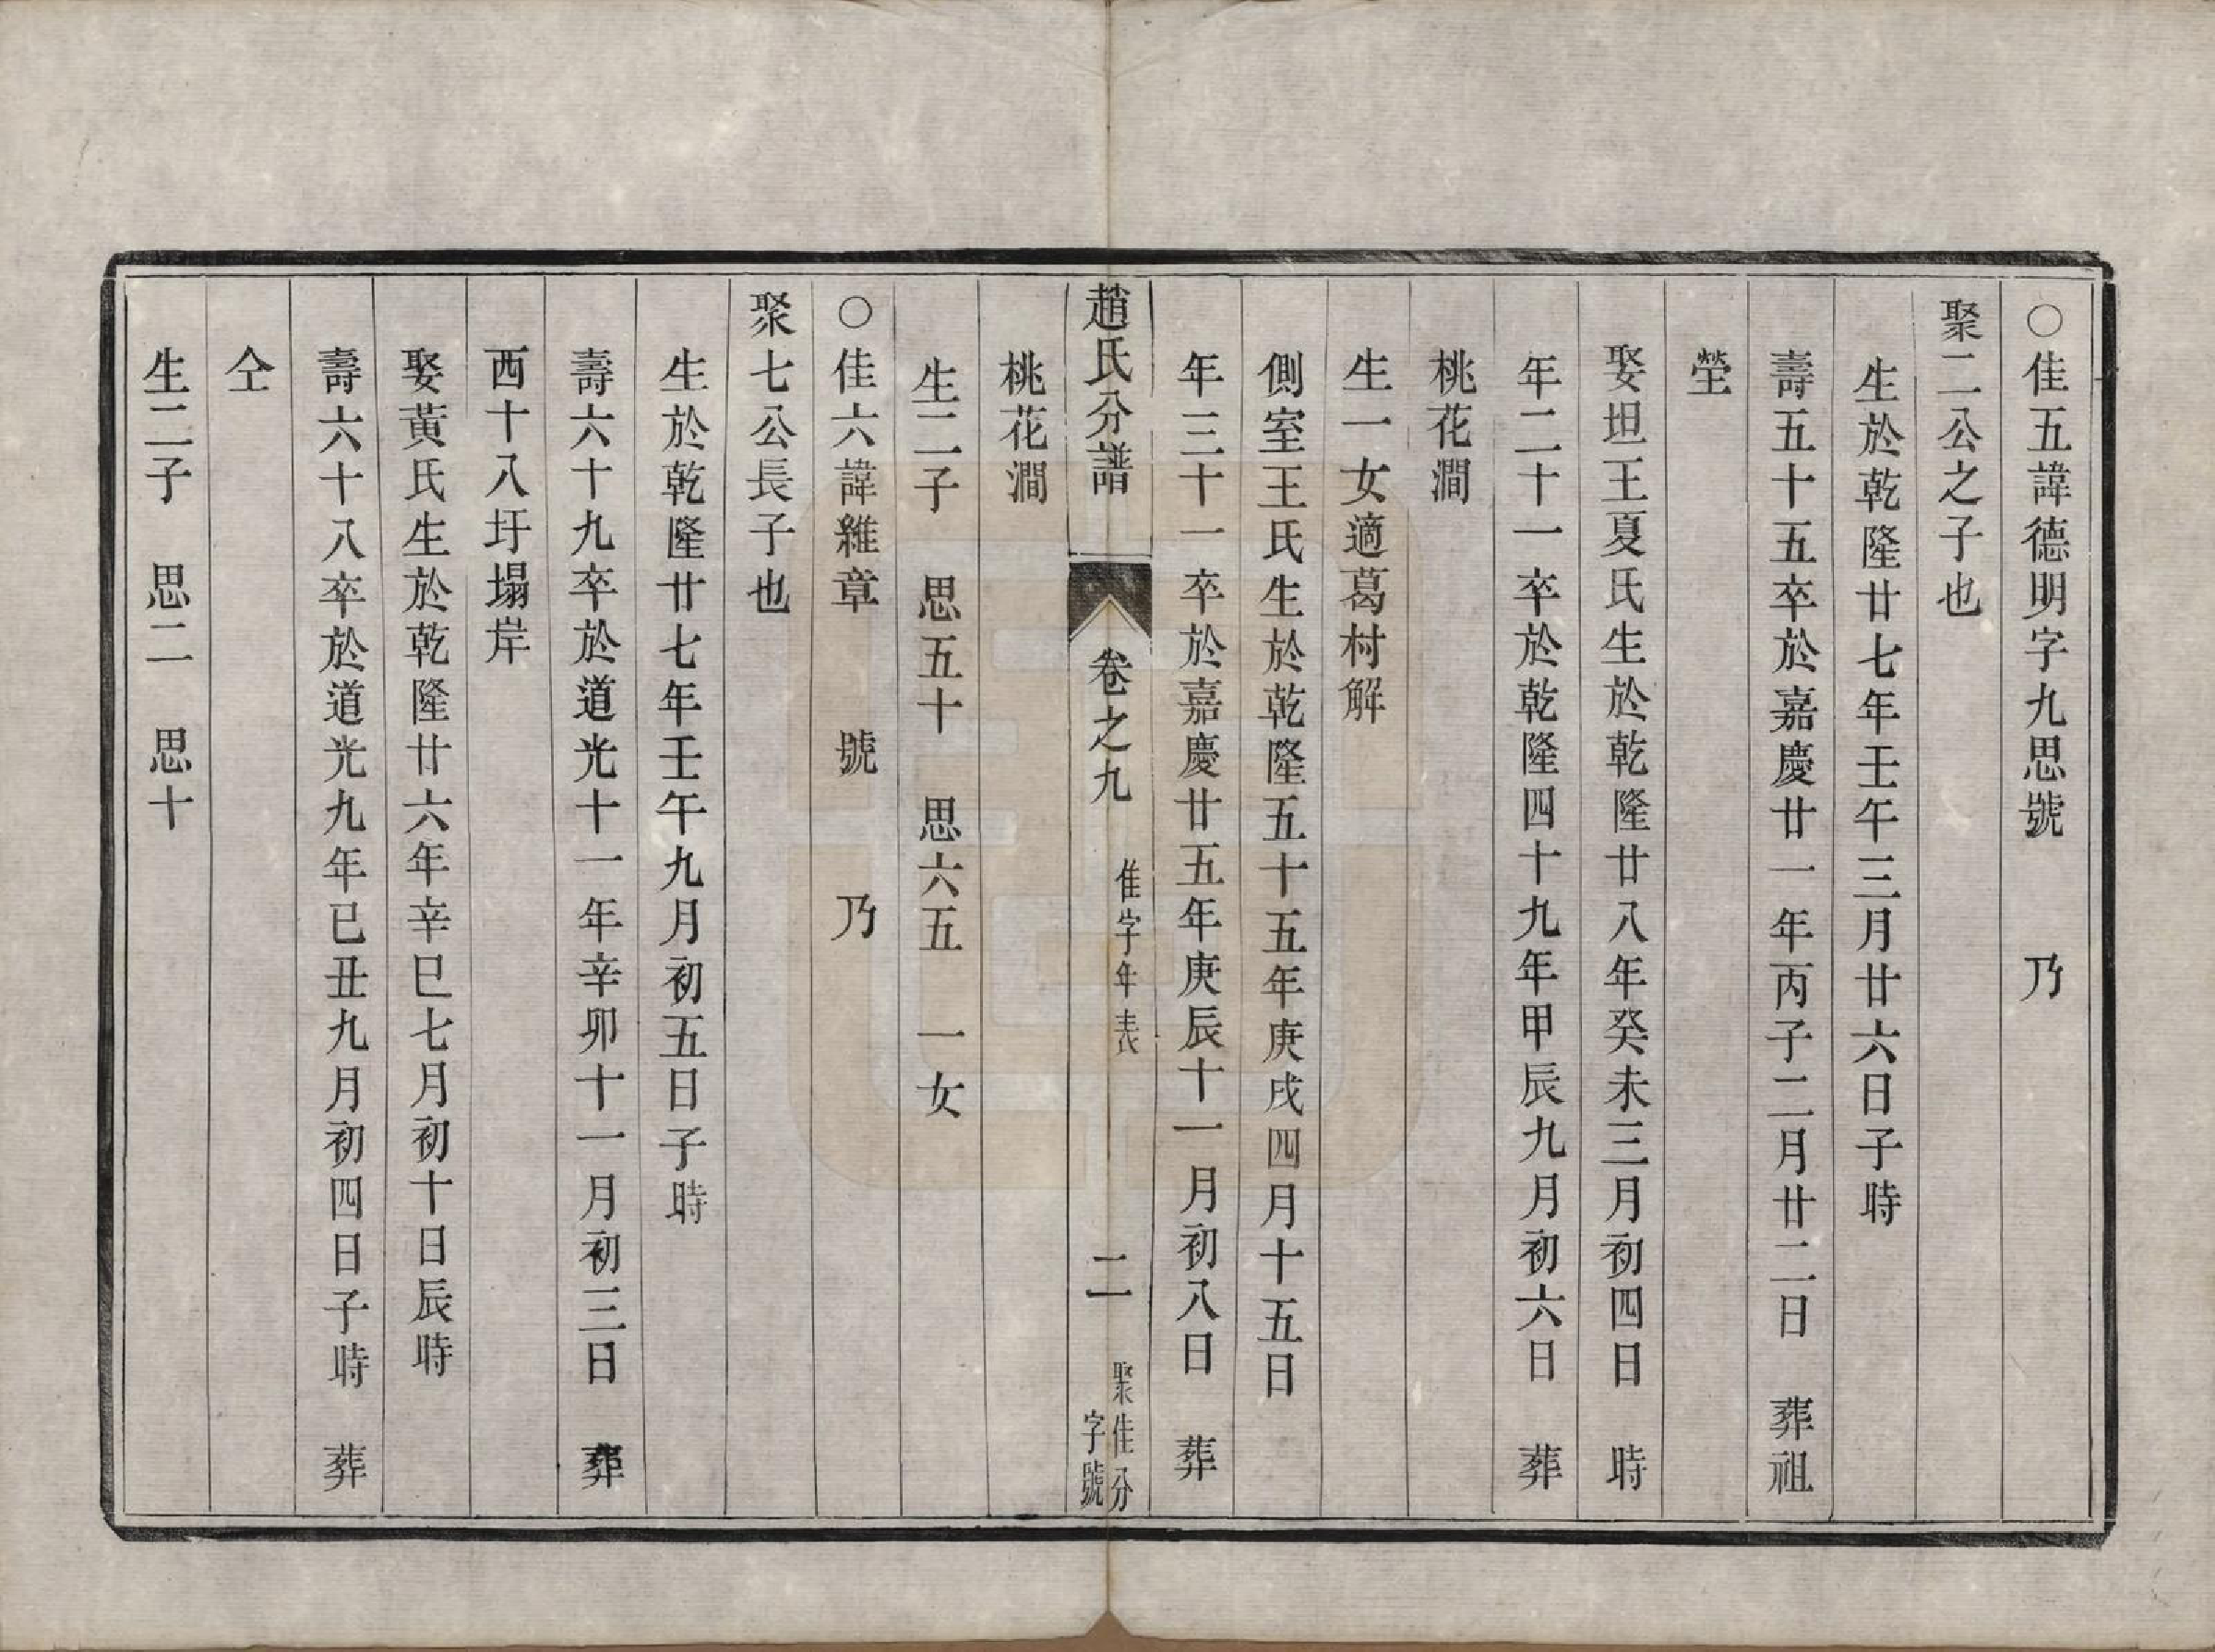 ○佳五諱德明字九思號　乃
聚二公之子也
生於乾隆廿七年壬午三月廿六日子時
壽五十五卒於嘉慶廿一年丙子二月廿二日　葬祖
塋
娶坦王夏氏生於乾隆廿八年癸未三月初四日　時
年二十一卒於乾隆四十九年甲辰九月初六日　葬
桃花澗
生一女適葛村解
側室王氏生於乾隆五十五年庚戌四月十五日
年三十一卒於嘉慶廿五年庚辰十一月初八日　葬
趙氏分譜　卷之九　佳字年表　二　聚佳分字號
桃花澗
生二子　思五十　思六五　一女
○佳六諱維章　號　乃
聚七公長子也
生於乾隆廿七年壬午九月初五日子時
壽六十九卒於道光十一年辛卯十一月初三日　葬
西十八圩塌岸
娶黃氏生於乾隆廿六年辛巳七月初十日辰時
壽六十八卒於道光九年已丑九月初四日子時　葬
仝
生二子　思二　思十